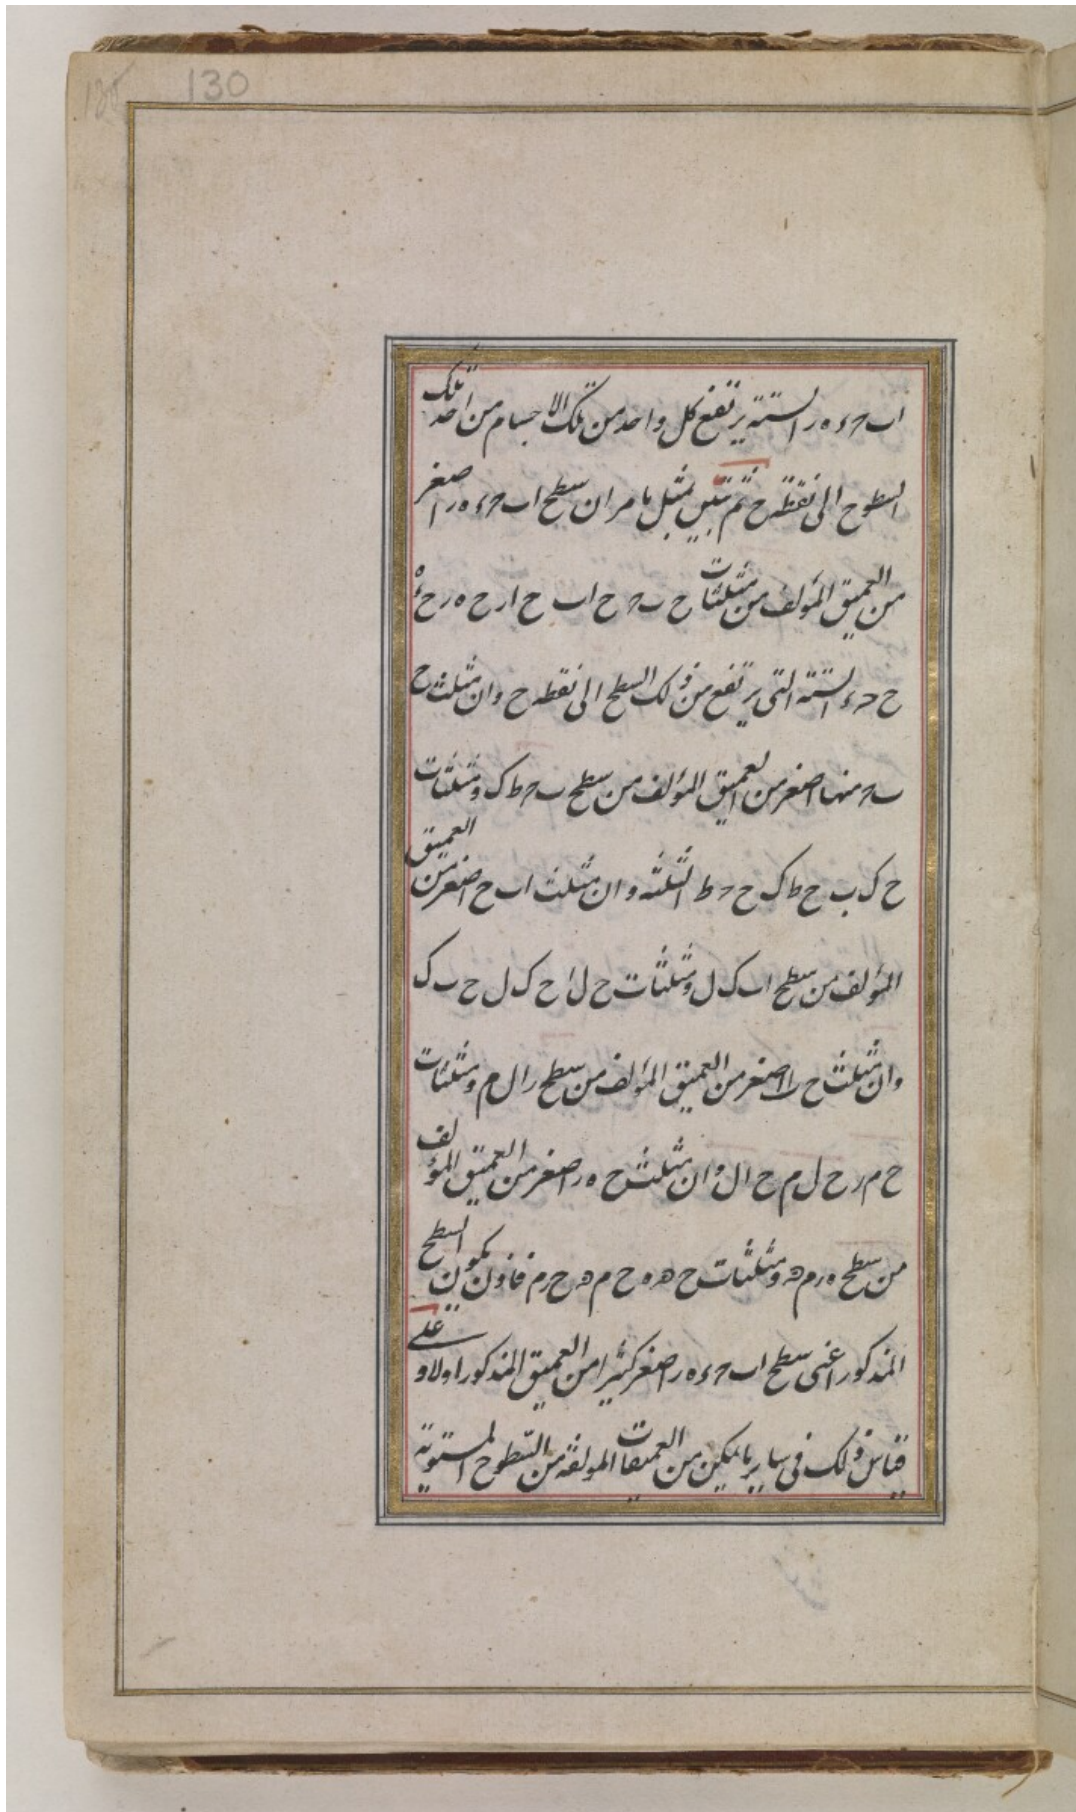 130
اب حء ه ر الستة يرتفع كل واحد من تلك الاجسام من احد تلك
السطوح الى نقطة ح ثم نبين بمثل ما مر ان سطح اب حء ه ر اصغر
من العميق المؤلف من مثلثات ح ب ح ح اب ح ار ح ه ر ح ء ه
ح حء الستة التى يرتفع من ذلك السطح الى نقطه ح وان مثلث ح
ب ح منها اصغر من العميق المؤلف من سطح ب ح ط ك ومثلثات
ح ك ب ح ط ك ح ح ط الثلثه وان مثلث اب ح اصغر من العميق
المؤلف من سطح اب ك ل ومثلثات ح ل ا ح ك ل ح ب ك
وان مثلث ح را اصغر من العميق المؤلف من سطح ر ال م ومثلثات
ح م ر ح ل م ح ال وان مثلث ح ه ر اصغر من العميق المؤلف
من سطح ه ر م ه ومثلثات ح ه ه ح م ه ح ر م فاذن يكون السطح
المذكور اعنى سطح اب حء ه ر اصغر كثيرا من العميق المذكور اولا و على
قياس ذلك فى ساير ما يمكن من العميقات المولفة من السطوح المستوية